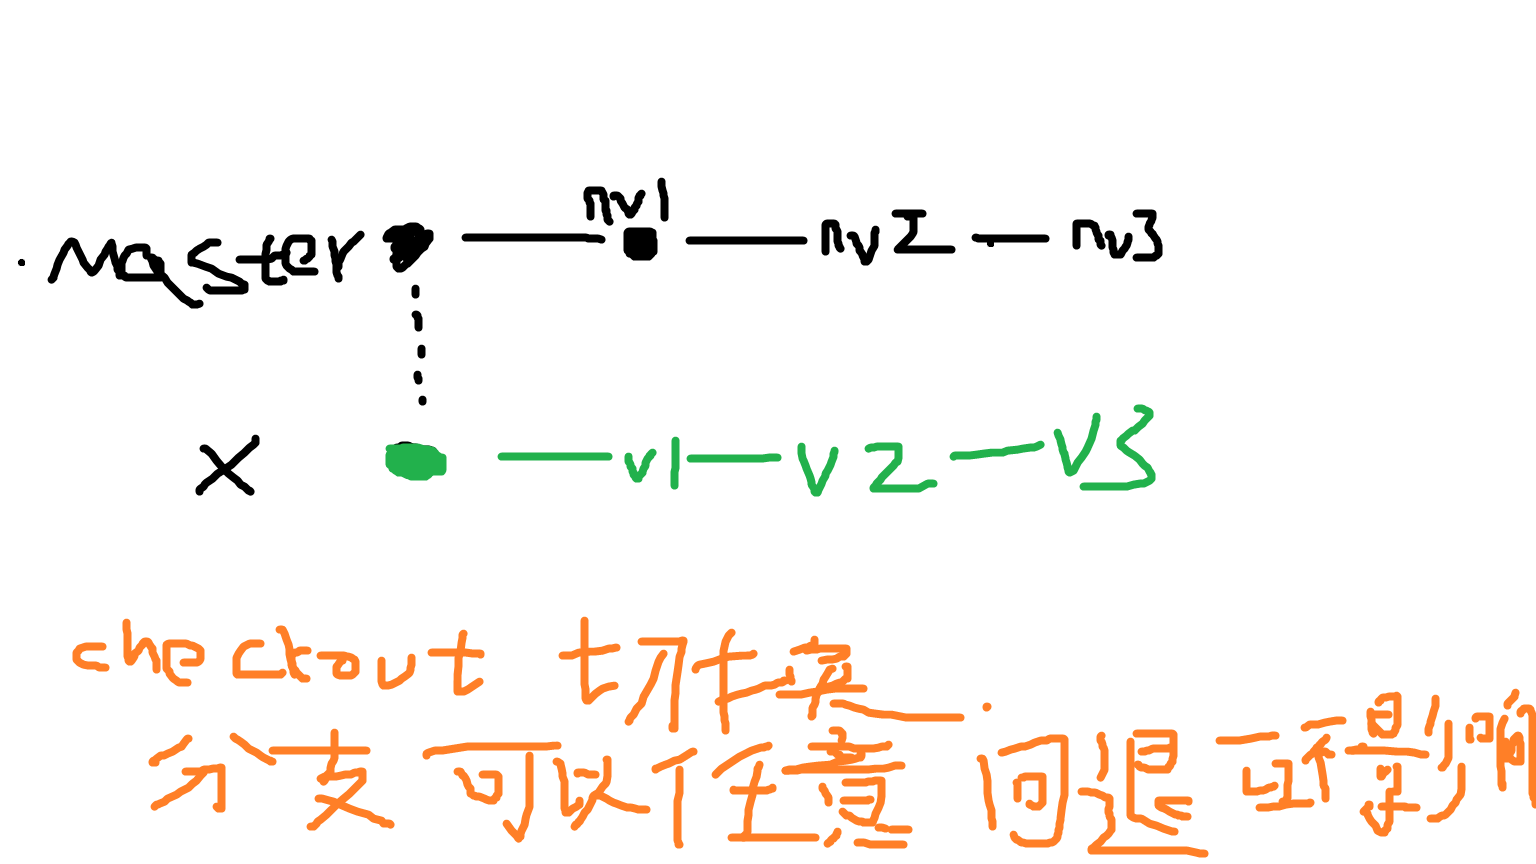 master nv1 nv2 nv3
X v1 v2 v3
checkout 切换
分支可以任意回退 而不影响